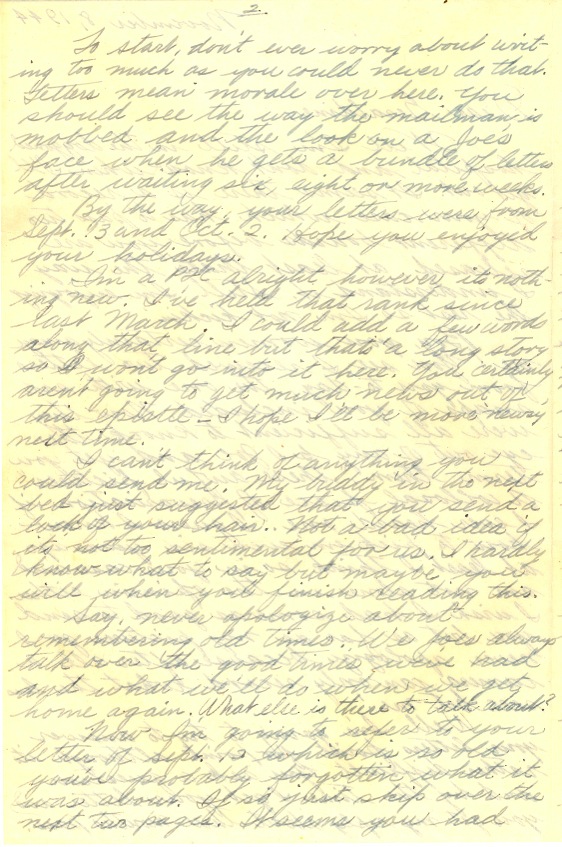 2.
To start, don't ever worry about writ-
ing too much as you could never do that.
Letters mean morale over here. You
should see the way the mailman is
mobbed and the look on a Joe's
face when he gets a bundle of letters
after waiting six, eight or more weeks.
By the way, your letters were from
Sept. 3 and Oct. 2. Hope you enjoyed
your holidays.
I'm a PFC alright however its noth-
ing new. I've held that rank since
last March. I could add a few words
along that line but that's a long story
so I won't go into it here. You certainly
aren't going to get much news out of
this epistle - I hope I'll be more newsy
next time.
I can't think of anything you
could send me. My buddy in the next
bed just suggested that you send a
lock of your hair. Not a bad idea if
its not too sentimental for us. I hardly
know what to say but maybe you
will when you finish reading this.
Say, never apologize about
remembering old times. We Joes always
talk over the good times we've had
and what we'll do when we get
home again. What else is there to talk about?
Now I'm going to refer to your
letter of Sept. 12 which is so old
you've probably forgotten what it
was about. If so just skip over the
next two pages. It seems you had